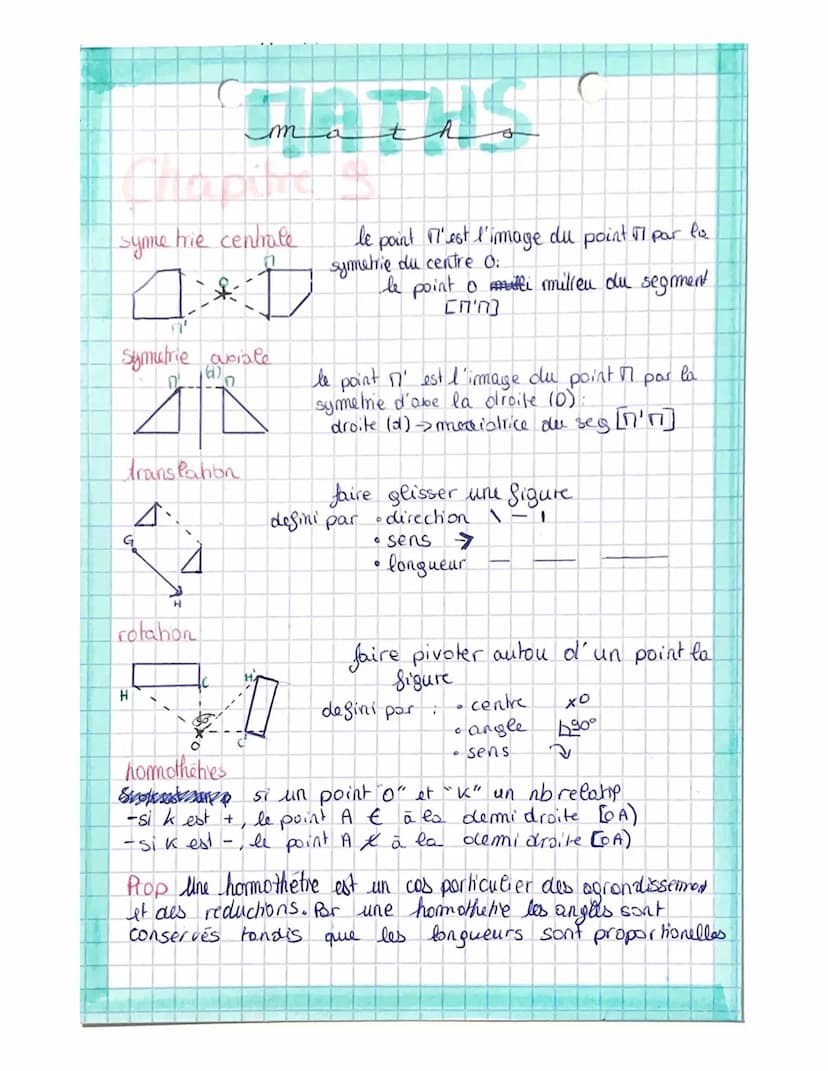 MATHS
maths
Chapitre 9
symetrie centrale
le point M' est l'image du point M par la
symetrie du centre O:
le point O milieu du segment
[M'M]
M
O
M'
symetrie axiale
M' (d) M
le point M' est l'image du point M par la
symetrie d'axe la droite (D):
droite (d) → mediatrice du seg [M'M]
translation
faire glisser une figure
defini par • direction \ — |
• sens →
• longueur — — —
G
H
rotation
faire pivoter autou d'un point la
figure
defini par : • centre xO
• angle 90°
• sens
H C H' C'
90°
O
homothéties
si un point "O" et "K" un nb relatif
-si k est +, le point A € à la demi droite [OA)
-si K est -, le point A ∉ à la demi droite [OA)
Prop Une homothétie est un cas particulier des agrondissement
et des reductions. Par une homothetie les angles sont
conservés tandis que les longueurs sont proportionelles